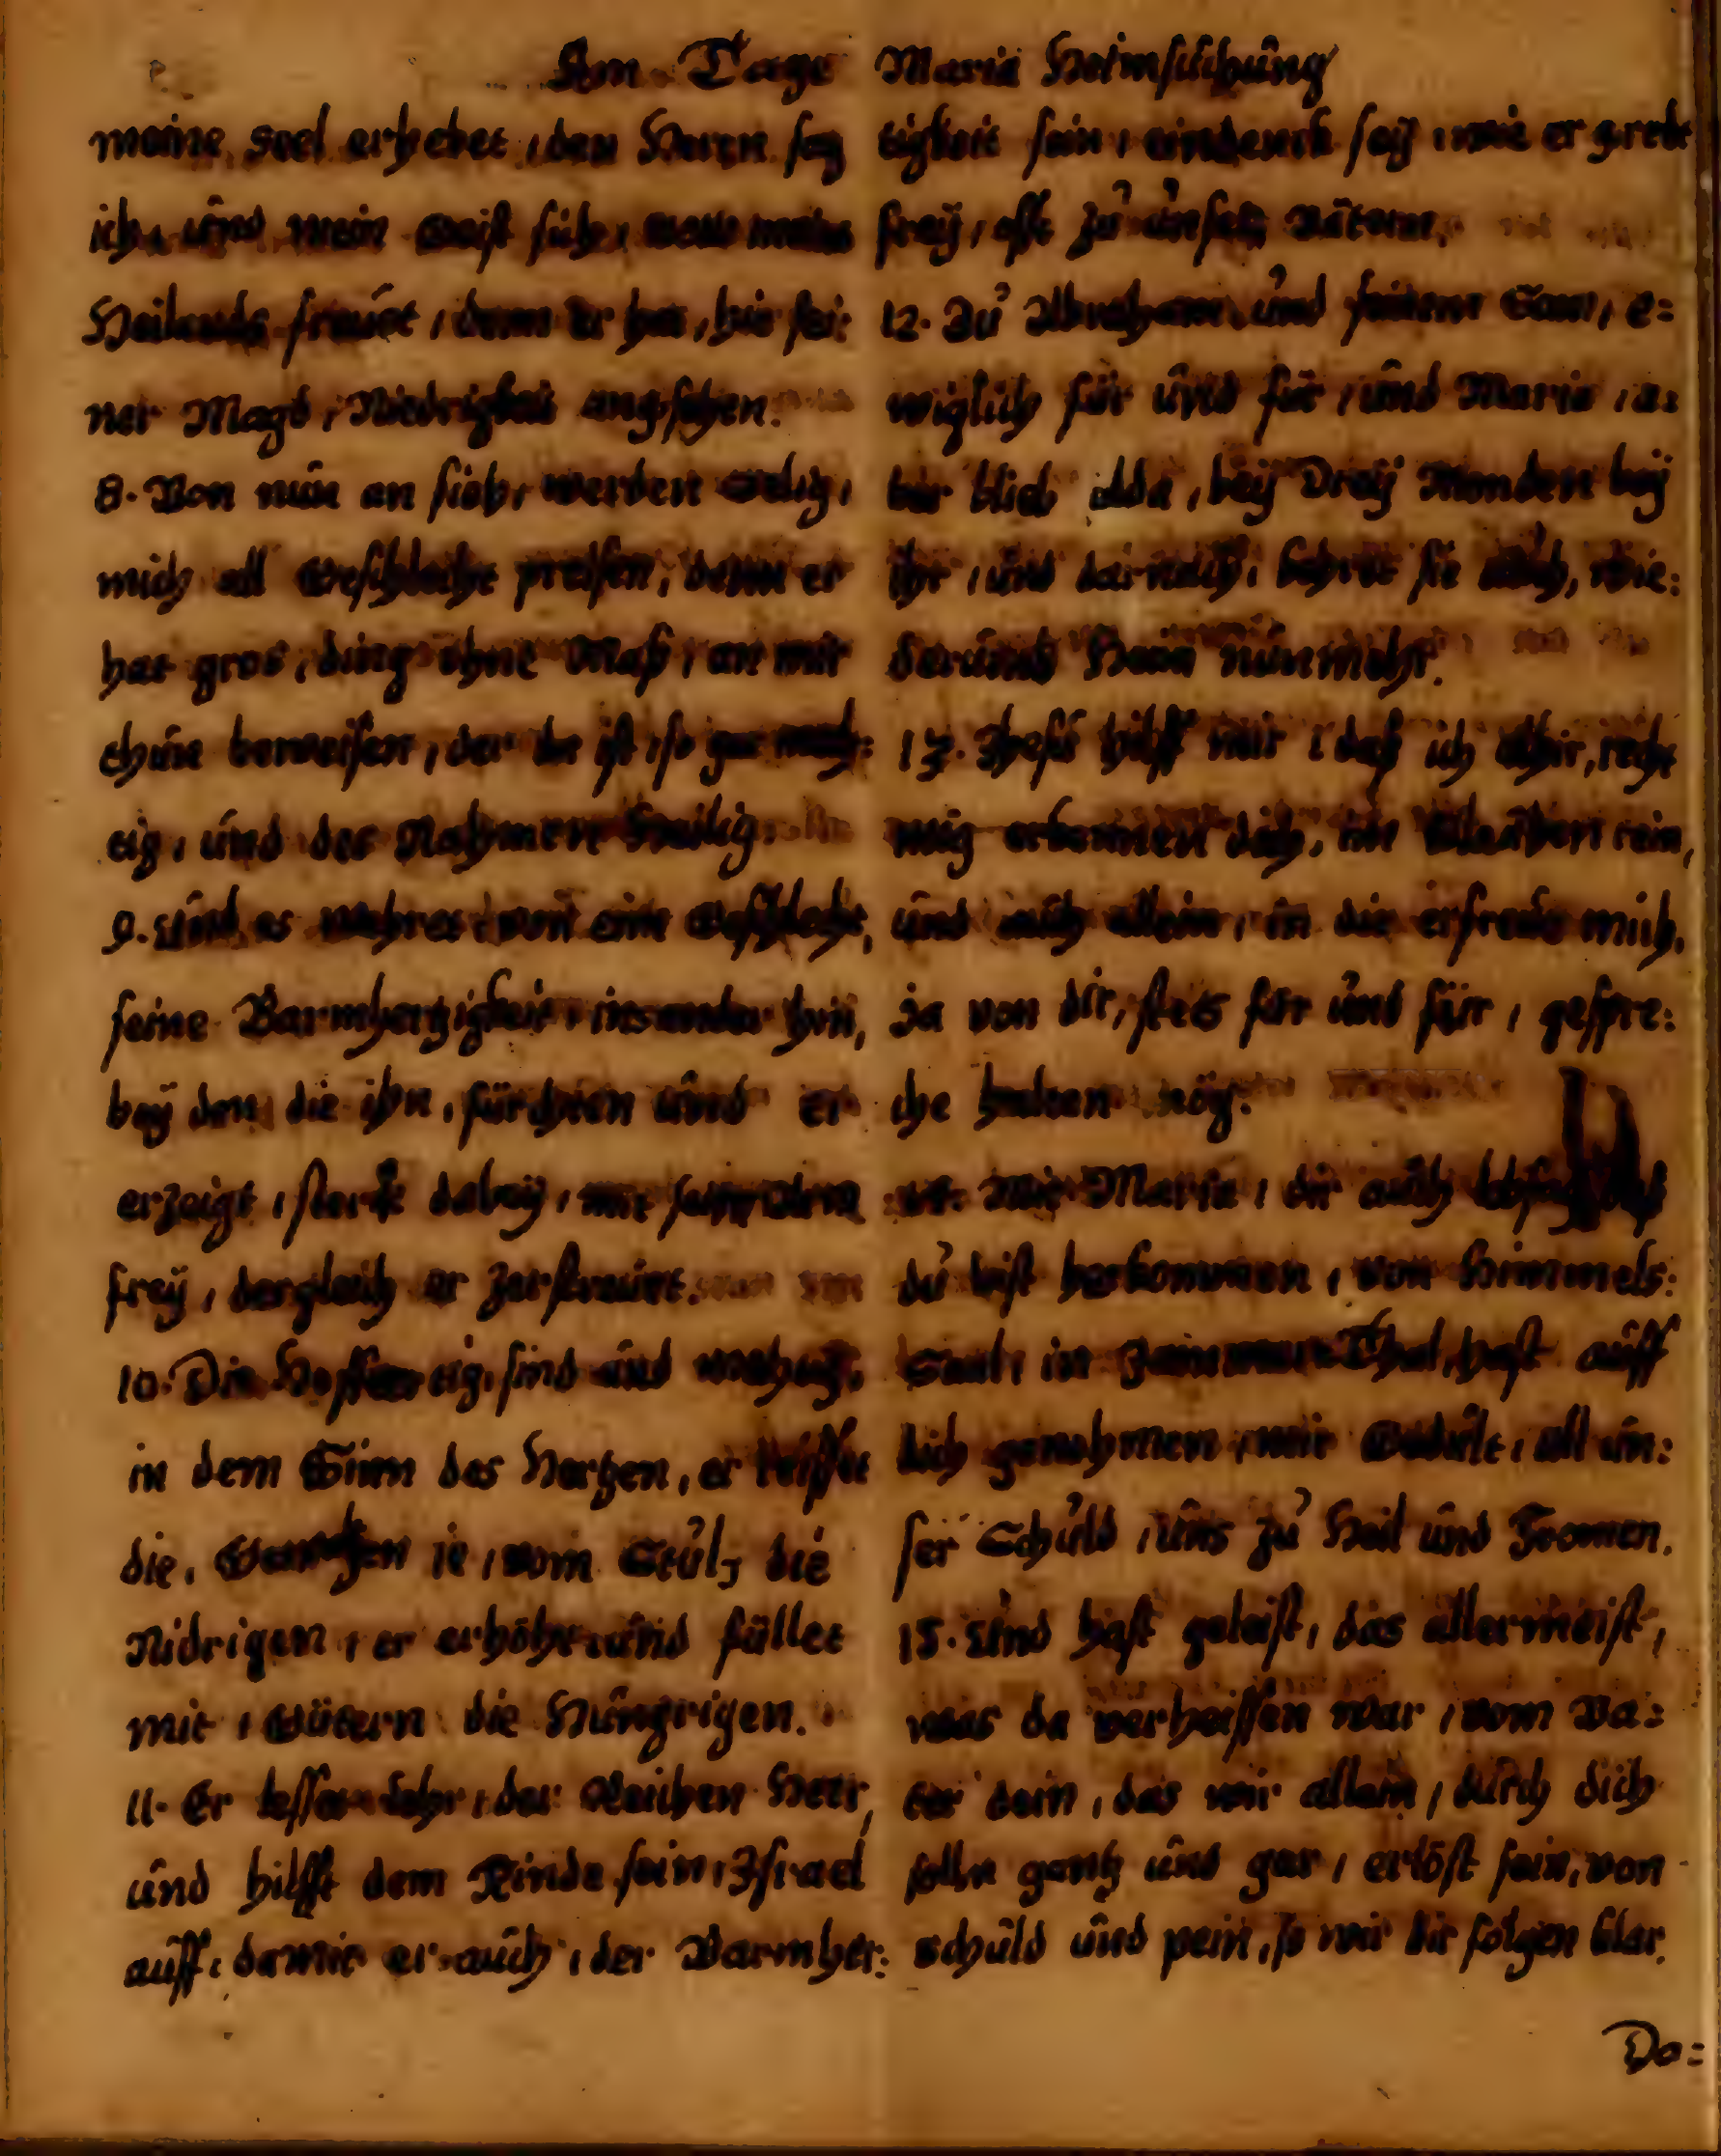 Am Tage Maria Heimsuchung
meine Seel erhebet, den Herrn sag
ich, und mein Geist sich, meins
Heilands freuet, denn er hat, hie sei:
ner Magd, Niedrigkeit angsehen.
8. Von nun an sieh, werden selig,
mich all Geschlecht preisen, denn er
hat gros, ding ohne Maß, an mir
thun beweisen, der da ist, so gar mech:
tig, und des Nahmen Heilig.
9. Und es wehret, von eim Geschlecht,
seine Barmhertzigkeit, ins ander hin,
bey den die ihn, fürchten und er
erzeigt, sterck dabey, mit seim Arm
frey, dergleich er zerstreuet.
10. Die Hoffertig, sind und
in dem Sinn des Hertzen, er
die, Gewaltgen ie, vom Stul, die
Nidrigen, er erhöht und füllet
mit, Gütern die Hungrigen.
11. Er lesset lehr, der Reichen Heer,
und hilfft dem Kinde sein, Israel
auff, damit er auch, der Barmher:
tigkeit sein, eindenck sey, wie er gredt
frey, offt zu unsern Vätern.
12. Zu Abraham, und seinem Sam, e:
wiglich für und für, und Maria, a:
ber blieb allda, bey Drey Monden bey
ihr, und darnach, kehret sie auch, wie:
derumb Heim nunmehr.
13. Jhesu hilff mir, daß ich allhir, recht
mög erkennen dich, im Glauben rein,
und auch allein, in dir erfreue mich,
Ja von dir, stets für und für, gespre:
che halten mög.
14. Mit Maria, dir auch lobsag, daß
du bist herkommen, von Himmels:
Saal, in Jammer Thal, hast auff
dich genohmen, mit Gedult, all un:
ser Schuld, uns zu Heil und Fromen.
15. Und hast geleist, das allermeist,
was da verheissen war, vom Va:
ter dein, das wir allein, durch dich
solln gantz und gar, erlöst sein, von
schuld und pein, so wir dir folgen klar.
Da: